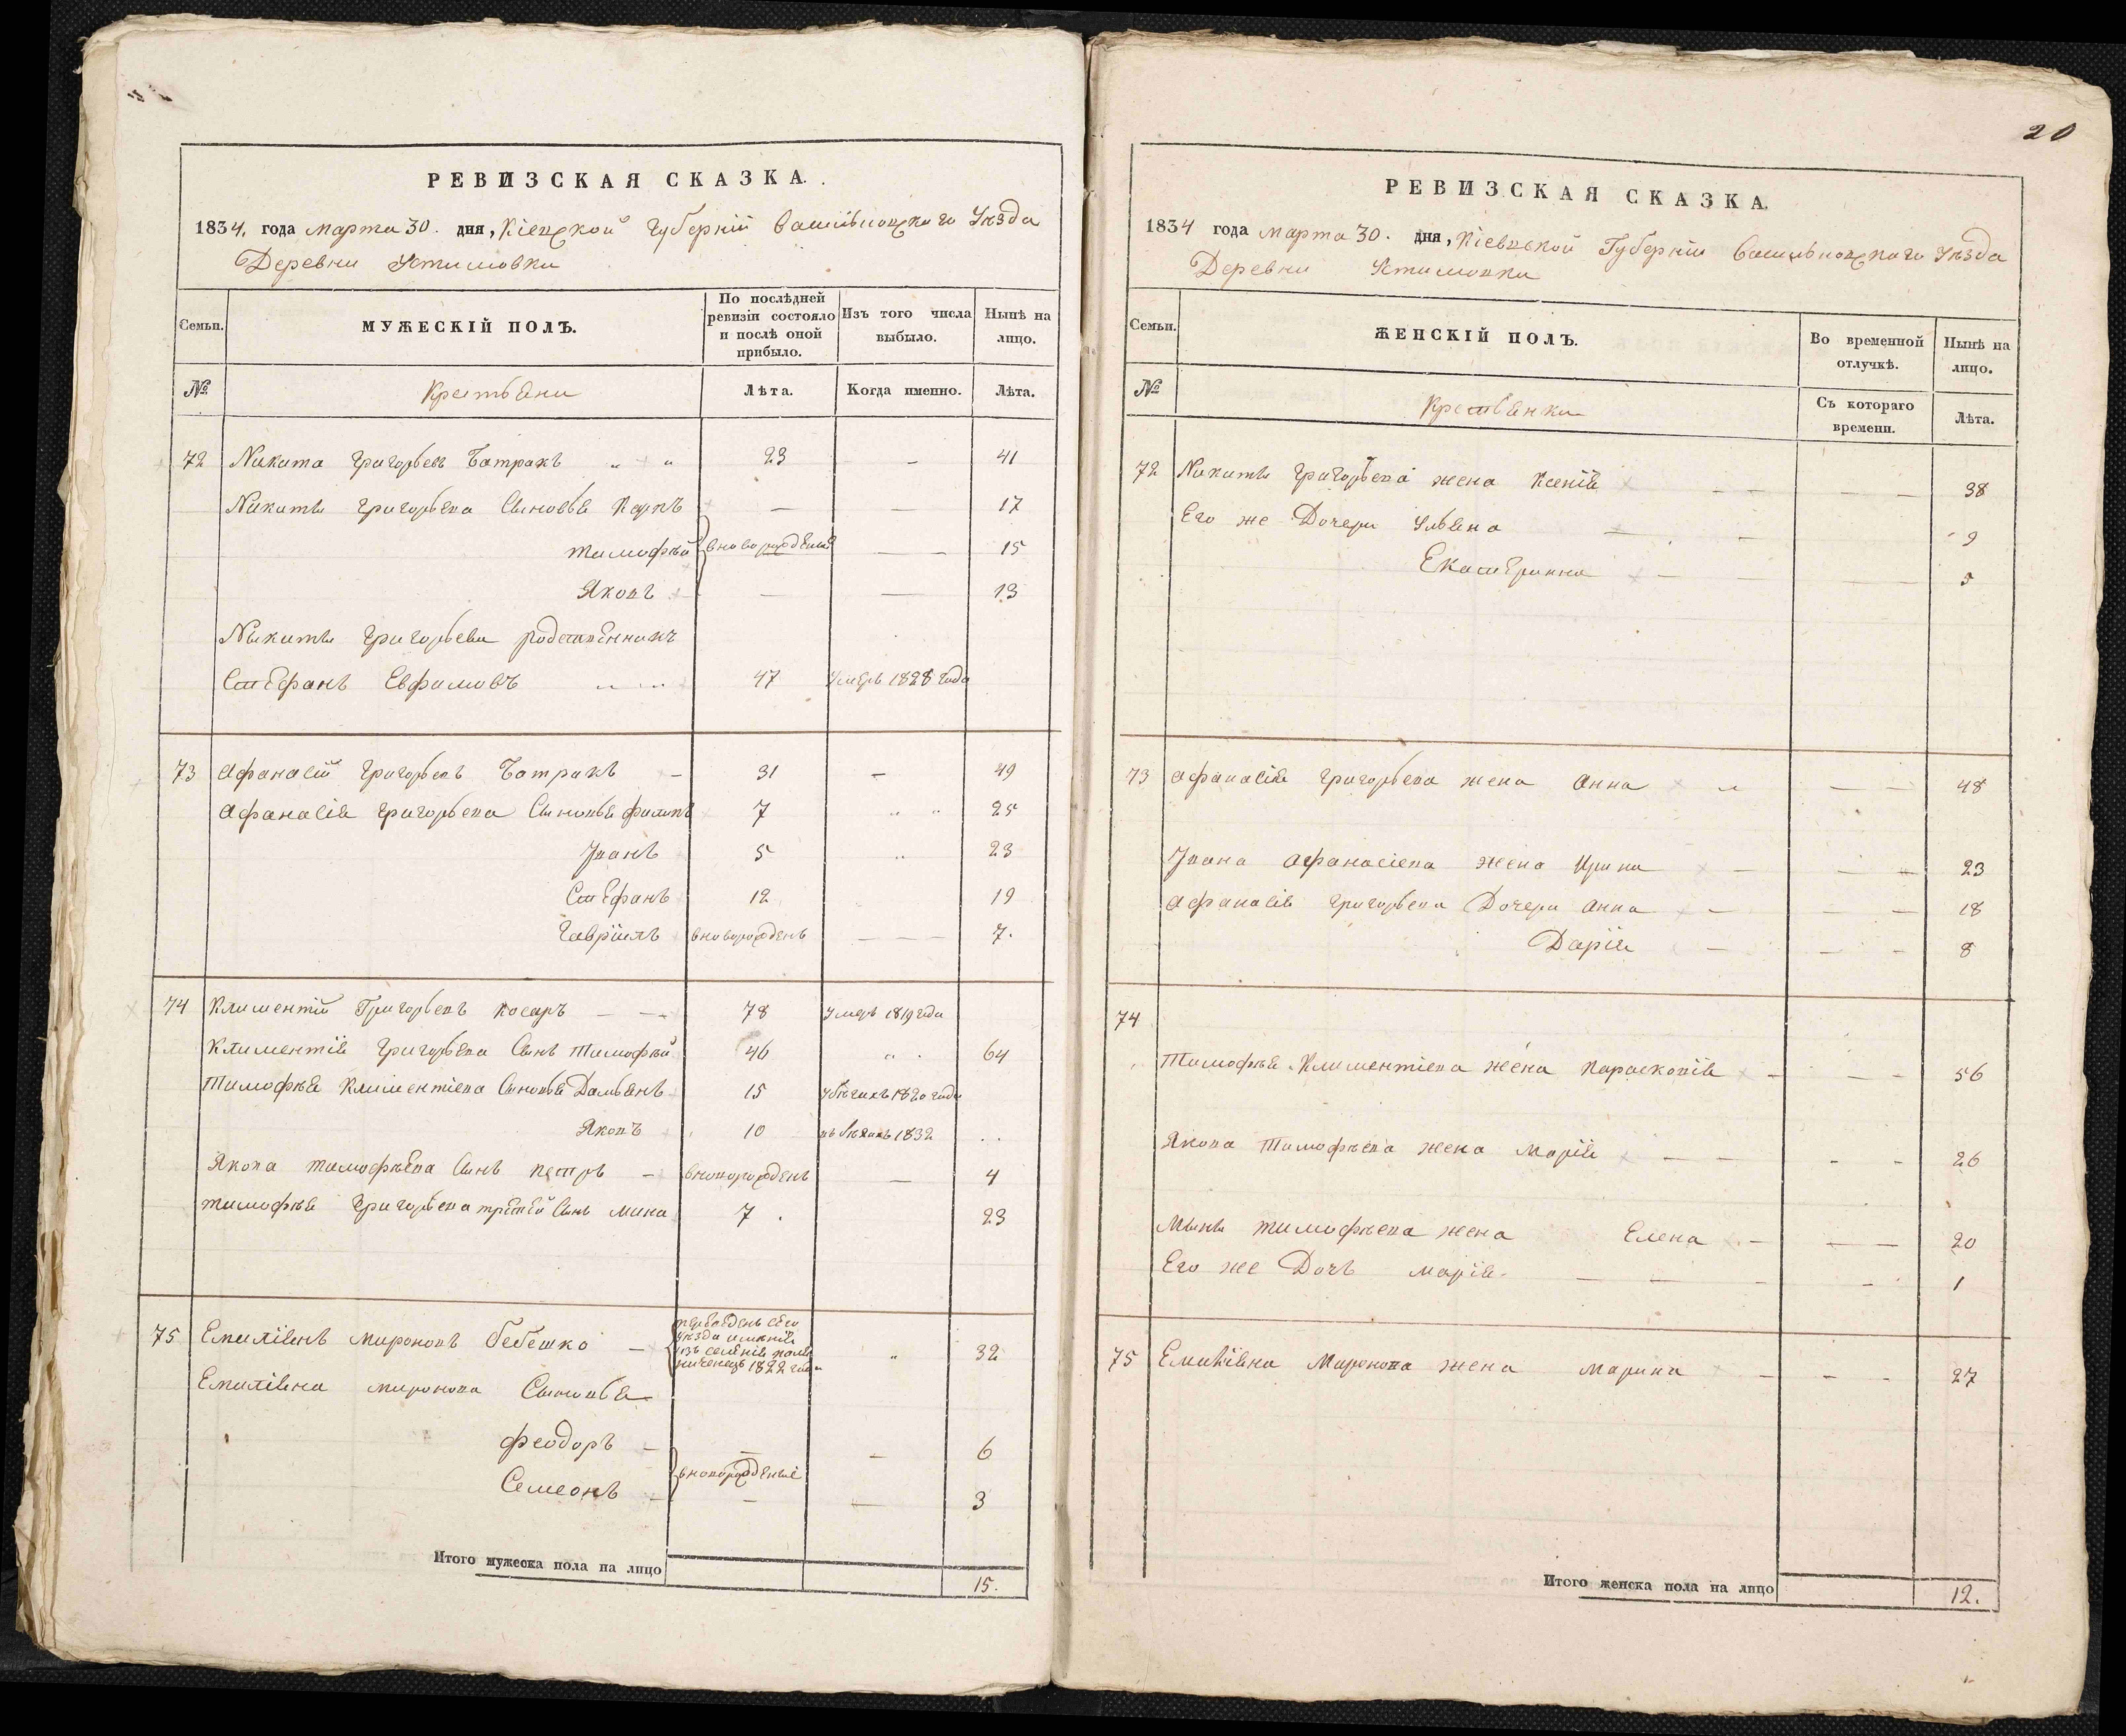 20
РЕВИЗСКАЯ СКАЗКА.
1834, года марта 30. дня, Кіевской Губерніи Васильковского Уѣзда
Деревни Устимовки
Семьи.
МУЖЕСКІЙ ПОЛЪ.
По послѣдней ревизіи состояло и послѣ оной прибыло.
Изъ того числа выбыло.
Нынѣ на лицо.
№
Крестьяни
Лѣта.
Когда именно.
Лѣта.
72 Никита Григорьевъ Батракъ 23 — 41
Никиты Григорьева Сыновья Карпъ — — 17
Тимофѣй вноворожденные — 15
Яковъ — — 13
Никиты Григорьева родственникъ
Стефанъ Евфимовъ 47 умеръ 1828 года
73 Афанасій Григорьевъ Батракъ — 31 — 49
Афанасія Григорьева Сыновья Филипъ 7 25
Иванъ 5 23
Стефанъ 12 19
Гавріилъ вноворожденъ — 7.
74 Климентій Григорьевъ Косаръ — 78 умеръ 1819 года
Климентія Григорьева Сынъ Тимофѣй 46 64
Тимофѣя Климентіева Сыновья Дамьянъ 15 убѣжалъ 1820 года
Яковъ 10 1832
Якова Тимофѣева Сынъ Петръ — вноворожденъ — 4
Тимофѣя Григорьева третей Сынъ Мина 7 23
75 Емиліянъ Мироновъ Бебешко — переведенъ сего уѣзда имѣнія изъ селенія 1822 года 32
Емиліяна Миронова Сыновья
Феодоръ — — 6
вноворожденые
Семеонъ — — 3
Итого мужеска пола на лицо 15.
РЕВИЗСКАЯ СКАЗКА.
1834 года марта 30. дня, Кіевской Губерніи Васильковскаго Уѣзда
Деревни Устимовки
Семьи.
ЖЕНСКІЙ ПОЛЪ.
Во временной отлучкѣ.
Нынѣ на лицо.
№
Крестьянки
Съ котораго времени.
Лѣта.
72 Никиты Григорьева жена Ксенія — — 38
Его же Дочери Ульяна — — 9
Екатерина — — 5
73 Афанасія Григорьева жена Анна — — 48
Ивана Афанасіева жена Ирина — — 23
Афанасія Григорьева Дочери Анна — — 18
Дарія — — 8
74
Тимофѣя Климентіева жена Парасковія — — 56
Якова Тимофѣева жена Марія — — 26
Мины Тимофѣева жена Елена — — 20
Его же Дочь Марія — — 1
75 Емиліяна Миронова жена Марина — — 27
Итого женска пола на лицо 12.